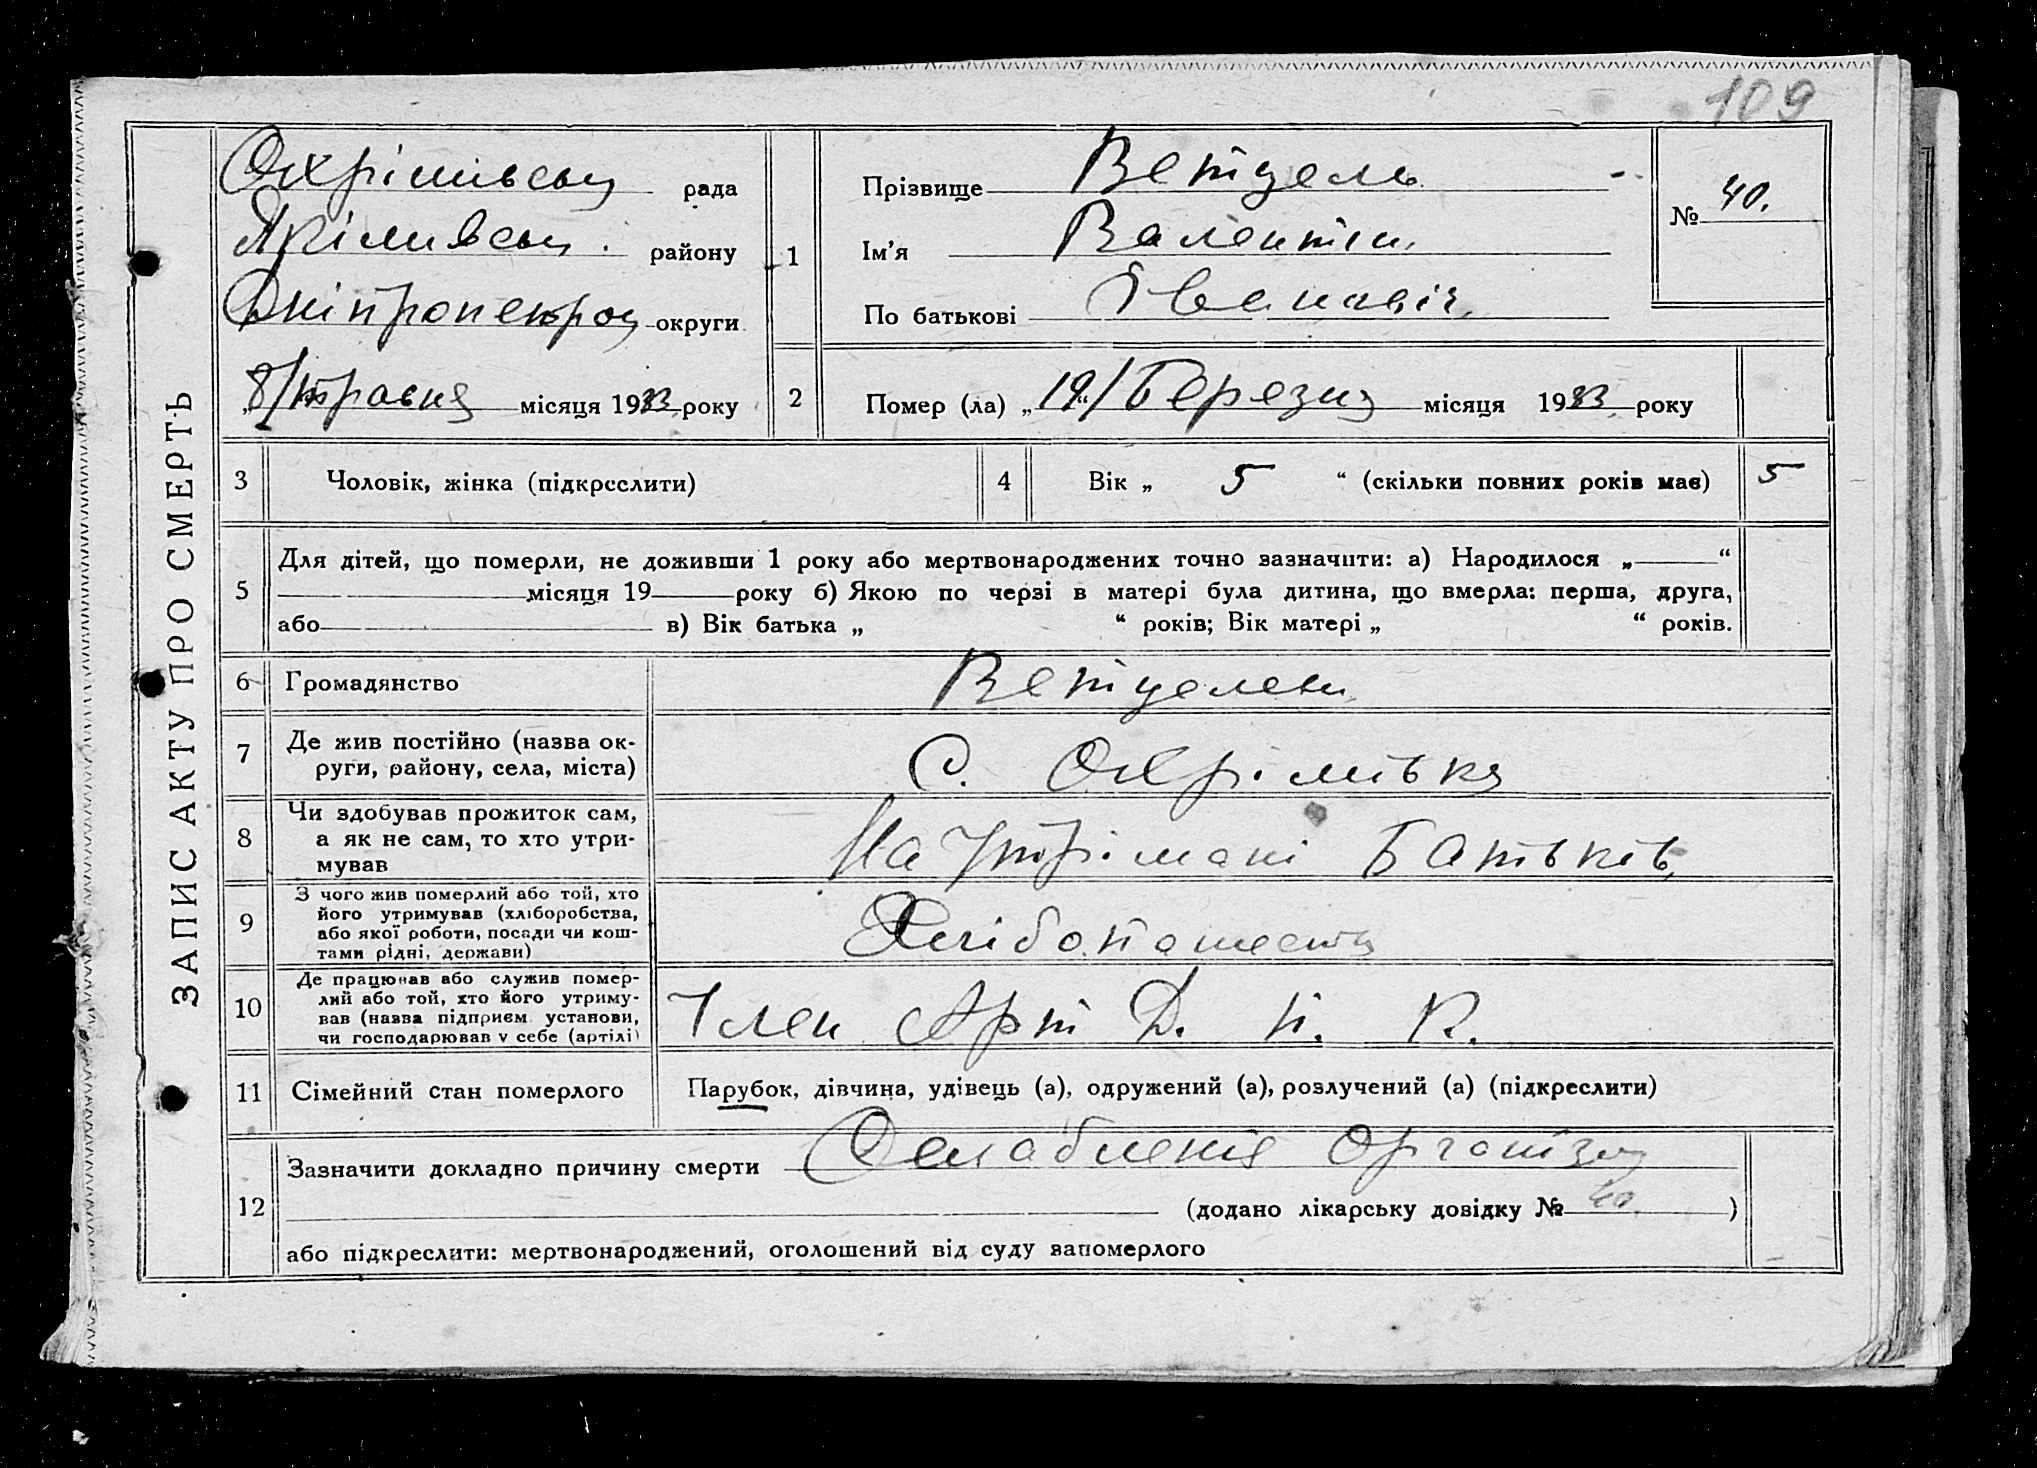 109
ЗАПИС АКТУ ПРО СМЕРТЬ
Охрімівськ рада
Якімивськ. району
Дніпропетров округи
„8/травня місяця 1933 року
1
Прізвище Ветцель
Ім'я Валентин.
По батькові Івановіч.
№ 40.
2
Помер (ла) „19“/Березня місяця 1933 року
3
Чоловік, жінка (підкреслити)
4
Вік „ 5 “ (скільки повних років має)
5
5
Для дітей, що померли, не доживши 1 року або мертвонароджених точно зазначити: а) Народилося „ “
місяця 19 року б) Якою по черзі в матері була дитина, що вмерла: перша, друга,
або в) Вік батька „ “ років; Вік матері „ “ років.
6
Громадянство
7
Де жив постійно (назва ок-
руги, району, села, міста)
С. Охрімівка
8
Чи здобував прожиток сам,
а як не сам, то хто утри-
мував
На утрімані Батьків,
9
З чого жив померлий або той, хто
його утримував (хліборобства,
або якої роботи, посади чи кош-
тами рідні, держави)
10
Де працював або служив помер-
лий або той, хто його утриму-
вав (назва підприєм. установи,
чи господарював у себе (артілі)
Член Арт Д. Н. К.
11
Сімейний стан померлого
Парубок, дівчина, удівець (а), одружений (а), розлучений (а) (підкреслити)
12
Зазначити докладно причину смерти Ослабленія Організму
(додано лікарську довідку № 40 )
або підкреслити: мертвонароджений, оголошений від суду запомерлого